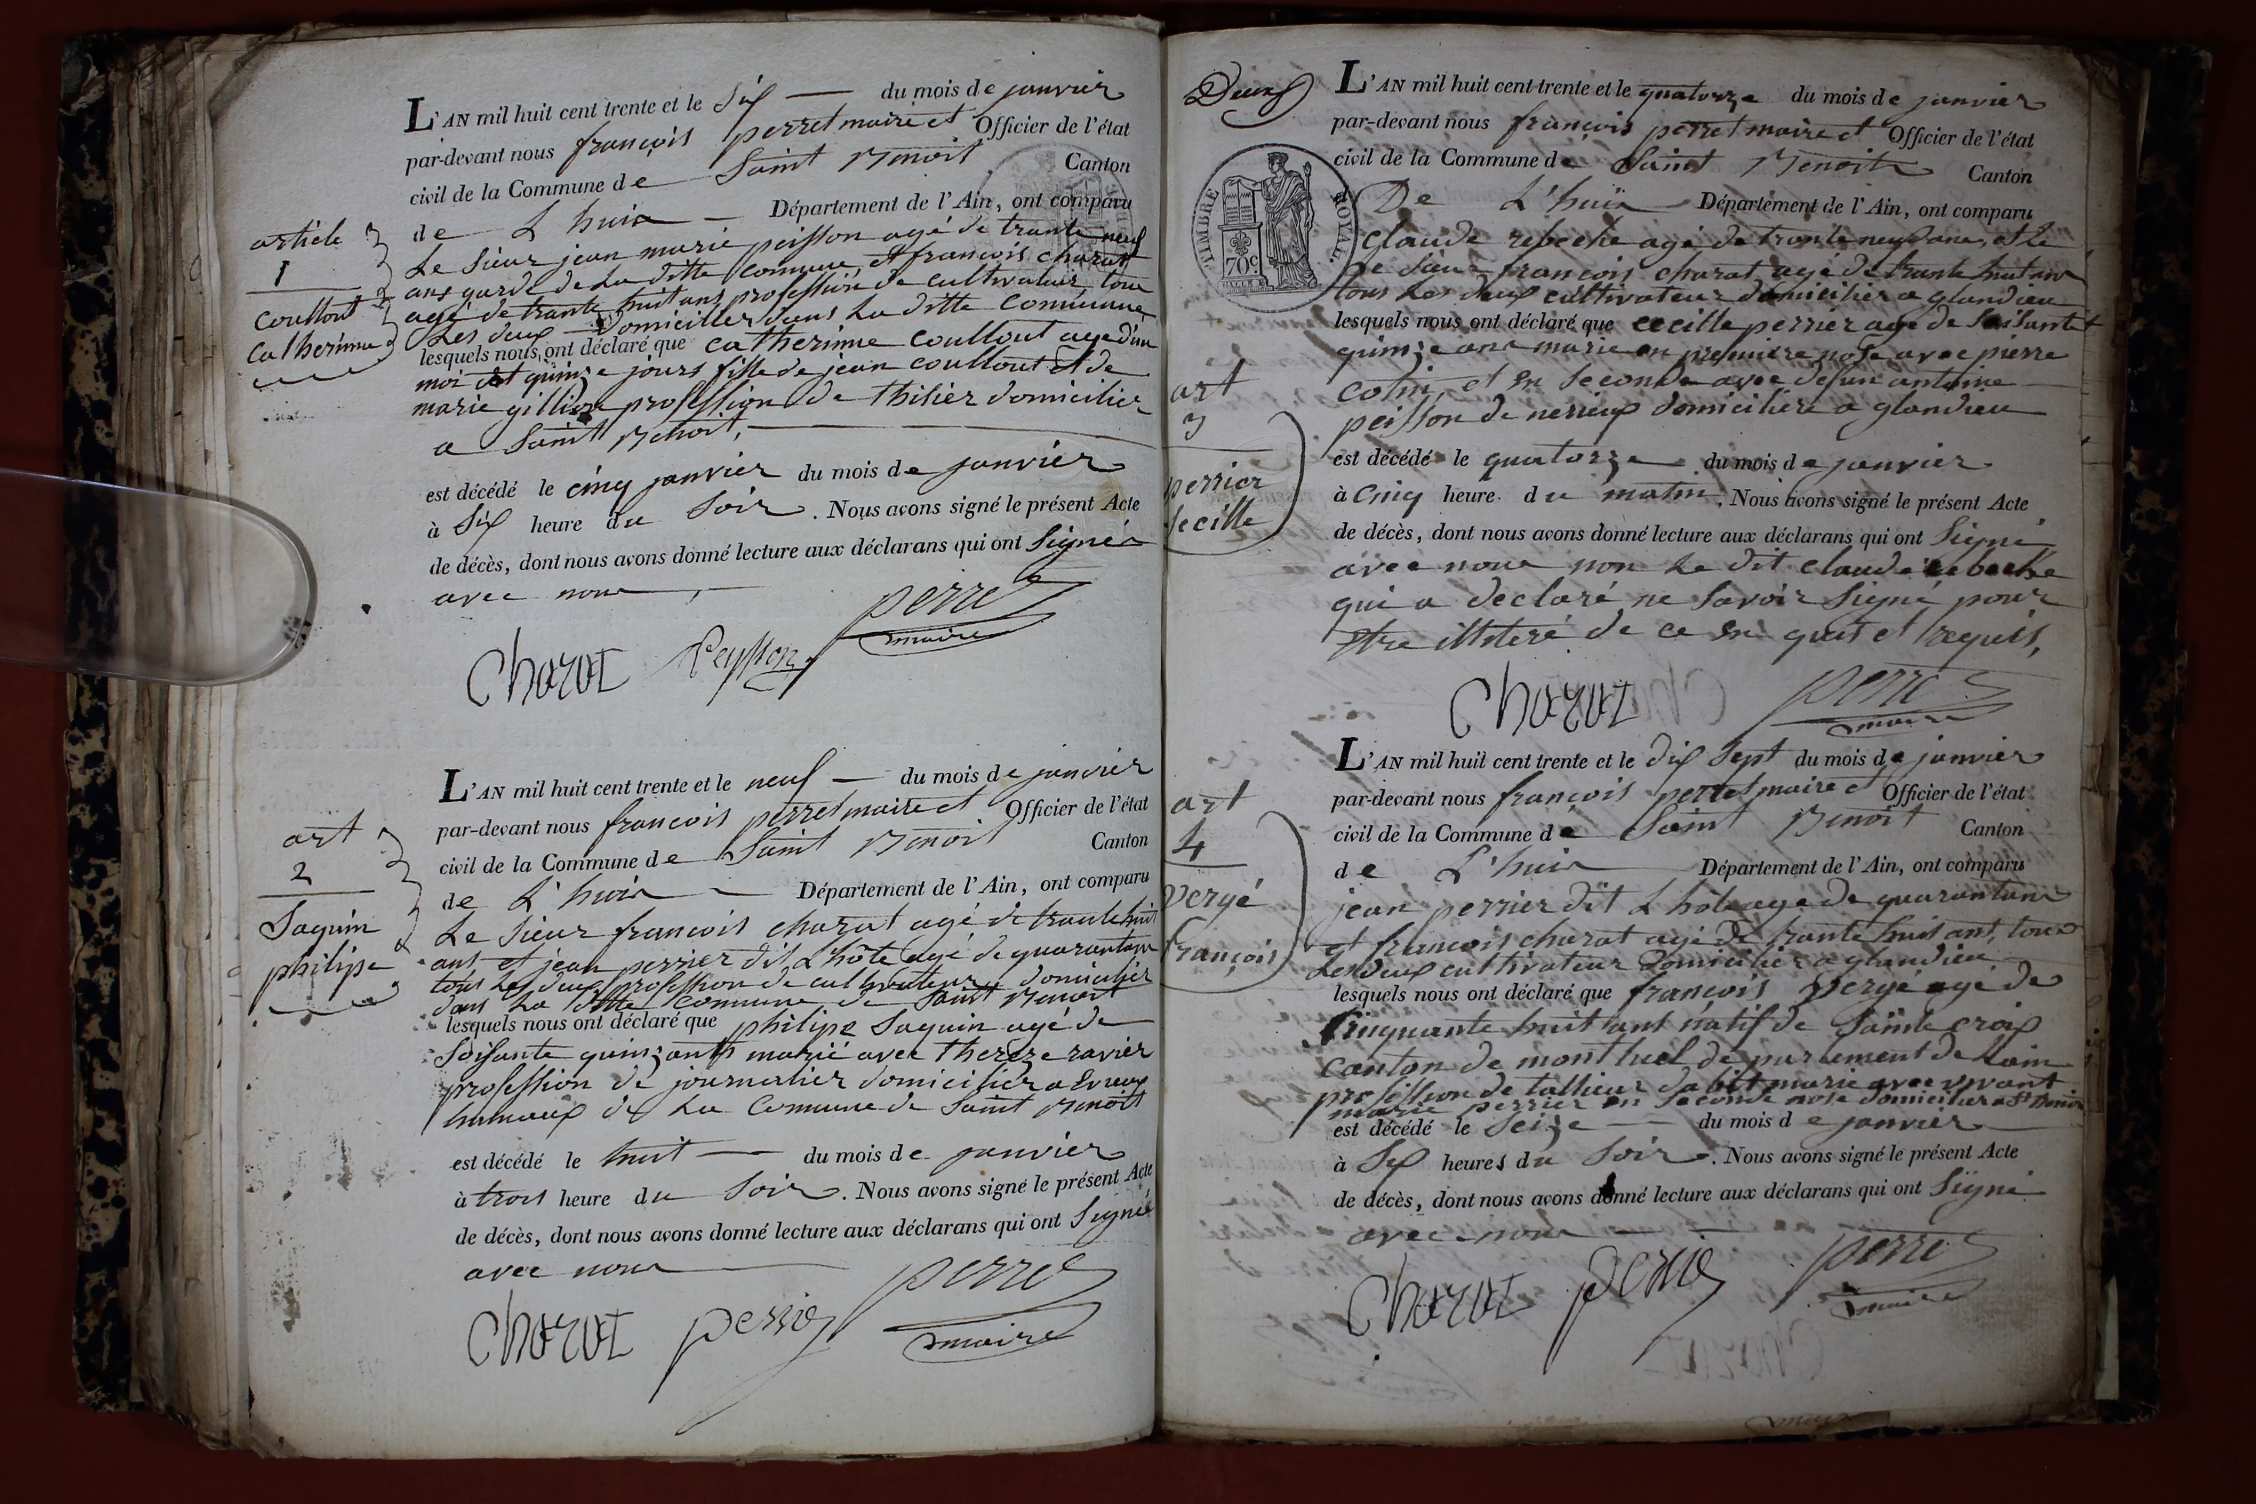 L'AN mil huit cent trente et le Six du mois de janvier
par-devant nous françois perret maire et Officier de l'état
civil de la Commune de Saint Benoit Canton
de L huis Département de l'Ain, ont comparu
Le sieur jean marie peisson agé de trante neuf
ans garde de La ditte Commune, et françois charat
agé de trante huit ans profession de cultivateur, tous
Les deux Domicilies dans La ditte Commune
lesquels nous ont déclaré que catherinne coullout age d'un
moi et quinze jours fille de jean coullout et de
marie gillion profession de thisier domicilier
a Saint Benoit,
est décédé le cinq janvier du mois de janvier
à Six heure du Soir. Nous avons signé le présent Acte
de décès, dont nous avons donné lecture aux déclarans qui ont Signée
avec nous,
article
1
coullout
Catherinne
Charat Peysson perret
maire
L'AN mil huit cent trente et le neuf du mois de janvier
par-devant nous françois perret maire et Officier de l'état
civil de la Commune de Saint Benoit Canton
de L'huis Département de l'Ain, ont comparu
Le Sieur francois charat agé de trante huit
ans et jean perrier dit L hôte agé de quarantans
tous Les deux profession de cultivateur domicilier
dans La ditte Commune de Saint Benoit
lesquels nous ont déclaré que philipe Saguin agé de
Soisante quinz ans marié avec thereze ravier
profession de journalier domicilier a Evieux
hamaux de La Comune de Saint Benoit
est décédé le huit du mois de janvier
à trois heure du Soir. Nous avons signé le présent Acte
de décès, dont nous avons donné lecture aux déclarans qui ont Signé
avec nous
art
2
Saguin
philipe
Charat perrier perret
maire
Deux
TIMBRE ROYAL
70c
L'AN mil huit cent trente et le quatorze du mois de janvier
par-devant nous françois perret maire et Officier de l'état
civil de la Commune de Saint Benoit Canton
De L'huis Département de l'Ain, ont comparu
claude rebeche agé de trante neuf ans, et le
Le sieur françois charat agé de trante huit ans
tous Les deux cultivateur domicilier a glandieu
lesquels nous ont déclaré que cecille perrier age de Soisante et
quinze ans marie en premiere nose avec pierre
et en Seconde avec defun antoine
peisson de nerieux domiciliere a glandieu
est décédé le quatorze du mois de janvier
à Cinq heure du matin. Nous avons signé le présent Acte
de décès, dont nous avons donné lecture aux déclarans qui ont Signé
avec nous non Le dit claude rebeche
qui a declaré ne Savoir Signé pour
Etre illiteré de ce requis,
art
3
perrier
Cecille
Charat perret
maire
L'AN mil huit cent trente et le dix Sept du mois de janvier
par-devant nous françois perret maire et Officier de l'état
civil de la Commune de Saint Benoit Canton
de L'huis Département de l'Ain, ont comparu
jean perrier dit L hôte age de quarantans
et francois charat agé de trante huit ans, tous
Les deux cultivateur domicilier a glandieu
lesquels nous ont déclaré que françois vergé agé de
Cinquante huit ans natif de Sainte croix
canton de montluel departement de Lain
profession de tallieur dabit marie avec vivant
marie perrier en Seconde nose domicilier a St Benoit
est décédé le Seize du mois de janvier
à Six heures du Soir. Nous avons signé le présent Acte
de décès, dont nous avons donné lecture aux déclarans qui ont Signé
avec nous
art
4
vergé
françois
Charat perrier perret
maire